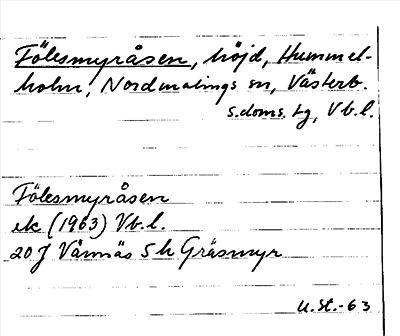 Fölesmyråsen, höjd, Hummel-
holm, Nordmalings sn, Västerb.
s.doms. tg, Vb.l.
Fölesmyråsen
ek (1963) Vb.l.
20J Vännäs 5h Gräsmyr
U.St.-63